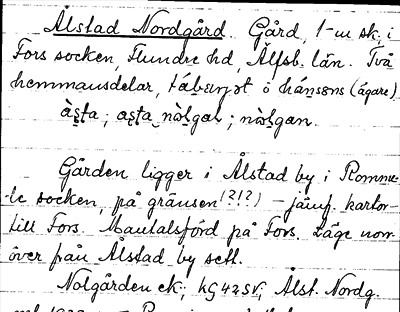 Ålstad Nordgård. Gård, 1-m sk, i
Fors socken, Flundre hd, Älfsb. län. Två
hemmansdelar, tábærjət ó hánsəns (ägare)
à̱sta; asta nòlgaɽ; nòlgan.
Gården ligger i Ålstad by i Romme-
le socken, på gränsen (?!?) – jämf. kartor-
till Fors. Mantalsförd på Fors. Läge norr
över från Ålstad by sett.
Nolgården ek; kG 42 SV, Ålst. Nordg.